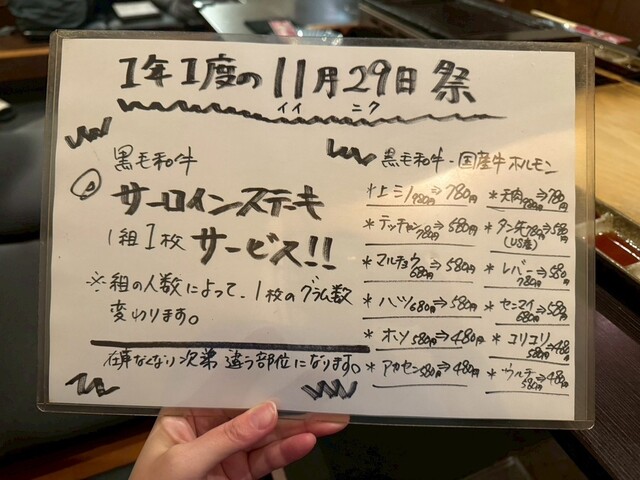 1年1度の11月29日祭
イイ ニク
黒毛和牛
サーロインステーキ
1組1枚 サービス!!
※組の人数によって、1枚のグラム数
変わります。
在庫なくなり次第違う部位になります。
黒毛和牛・国産牛ホルモン
*上ミノ980円⇒780円
*テッチャン780円⇒580円
*マルチョウ680円⇒580円
*ハツ680円⇒580円
*ホソ580円⇒480円
*アカセン580円⇒480円
*天肉980円⇒780円
*タン先780円⇒580円
(US産)
*レバー⇒580円
780円
*センマイ⇒580円
680円
*コリコリ⇒480円
580円
*ウルテ⇒480円
580円